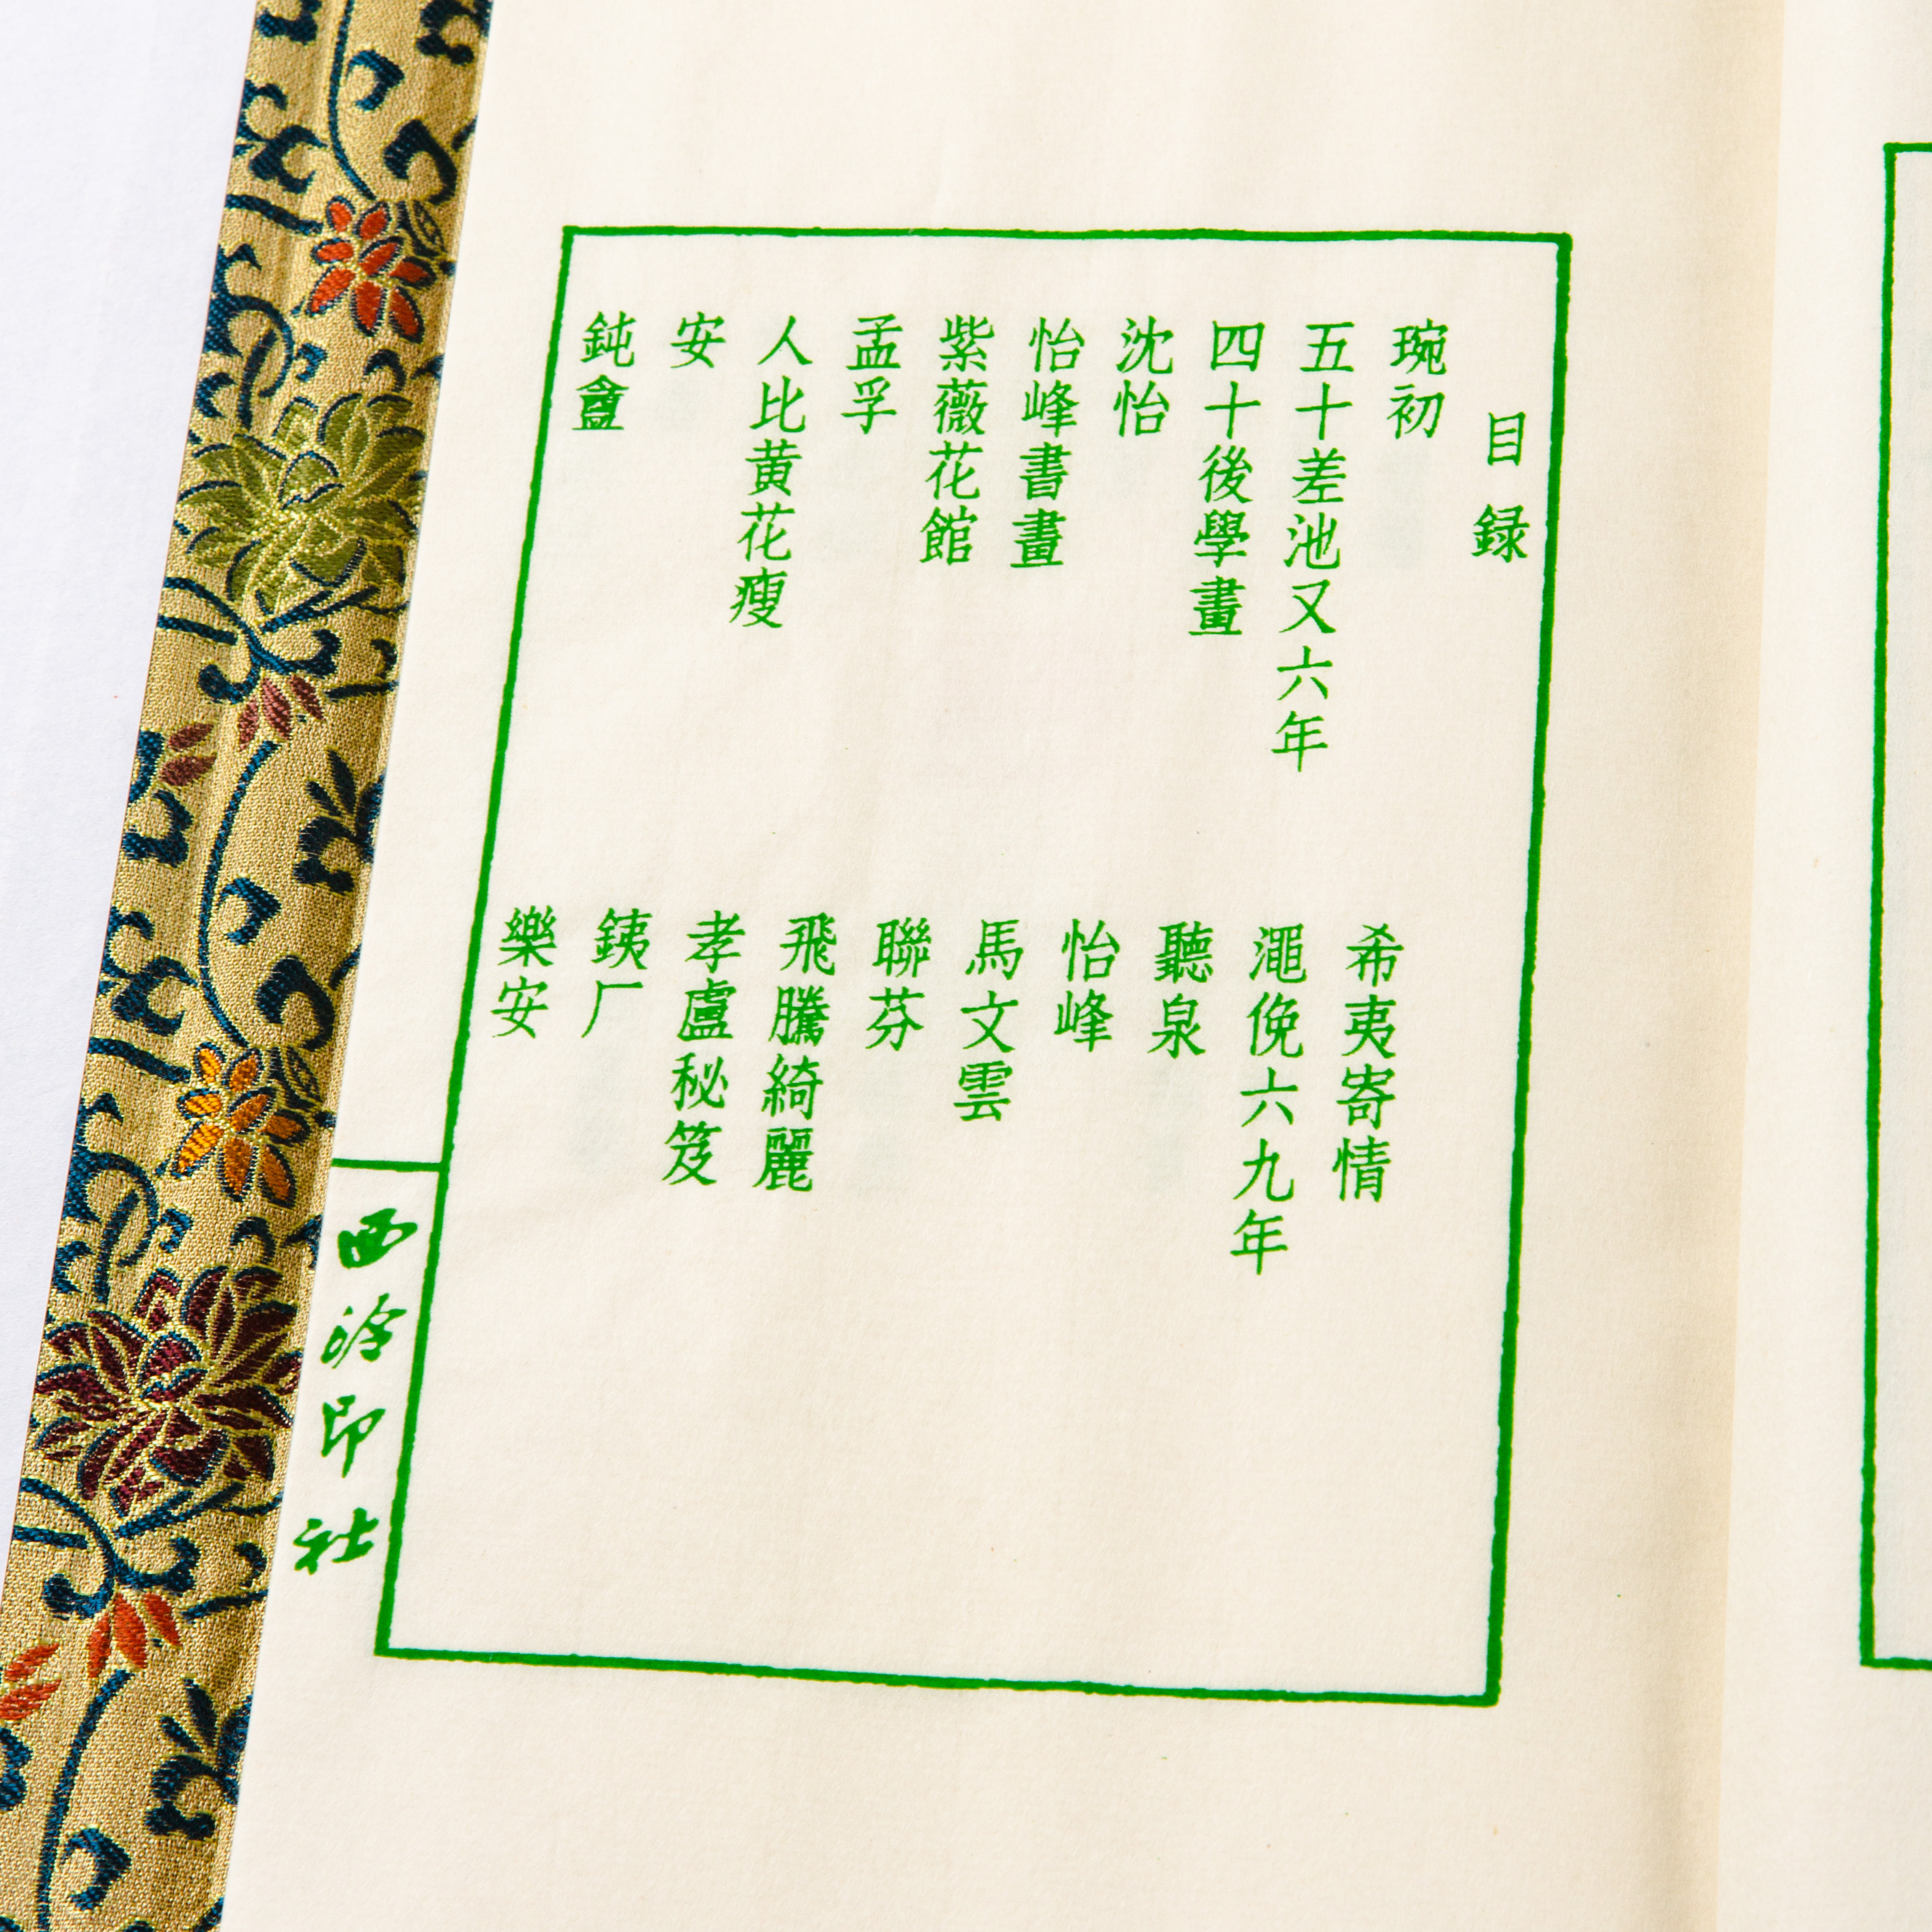 目録
琬初
五十差池又六年
四十後學畫
沈怡
怡峰書畫
紫薇花館
孟孚
人比黄花瘦
安
鈍盦
希夷寄情
澠俛六九年
聽泉
怡峰
馬文雲
聯芬
飛騰綺麗
孝盧秘笈
銕厂
樂安
西泠印社